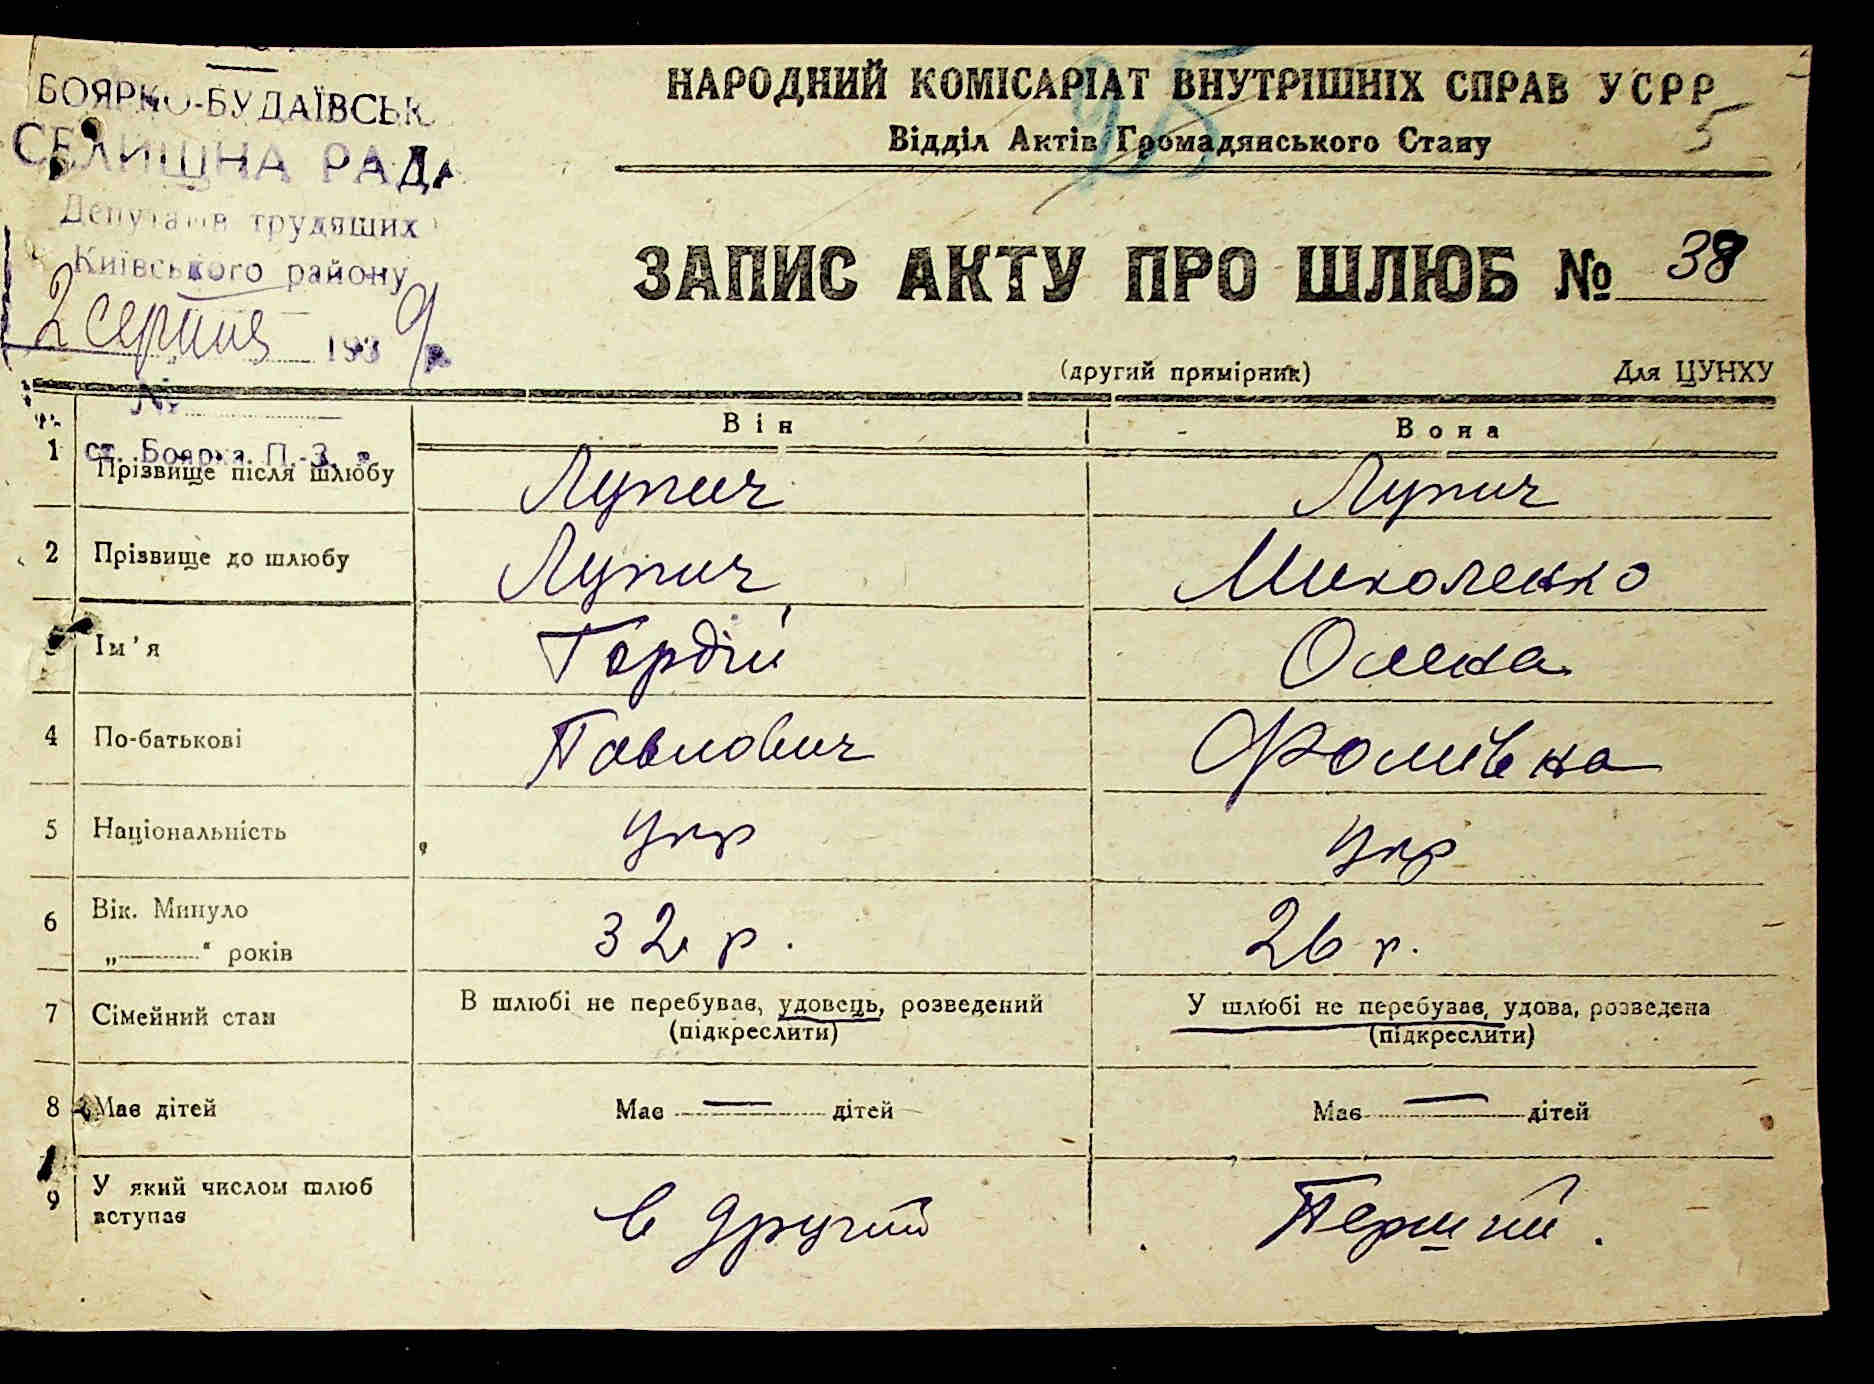 БОЯРКО-БУДАЇВСЬК
СЕЛИЩНА РАДА
Депутатів трудящих
Київського району
2 серпня 1939 р.
№
ст. Боярка, П.-З.
НАРОДНИЙ КОМІСАРІАТ ВНУТРІШНІХ СПРАВ УСРР
25
5
Відділ Актів Громадянського Стану
ЗАПИС АКТУ ПРО ШЛЮБ № 38
(другий примірник) Для ЦУНХУ
Він Вона
1 Прізвище після шлюбу Лупич Лупич
2 Прізвище до шлюбу Лупич Миколенко
Ім'я Гордій Олена
4 По-батькові Павлович Фомівна
5 Національність укр укр
6 Вік. Минуло
„ “ років 32 р. 26 р.
7 Сімейний стан В шлюбі не перебував, удовець, розведений У шлюбі не перебував, удова, розведена
(підкреслити) (підкреслити)
8 Має дітей Має — дітей Має — дітей
9 У який числом шлюб
вступає в другий Перший.